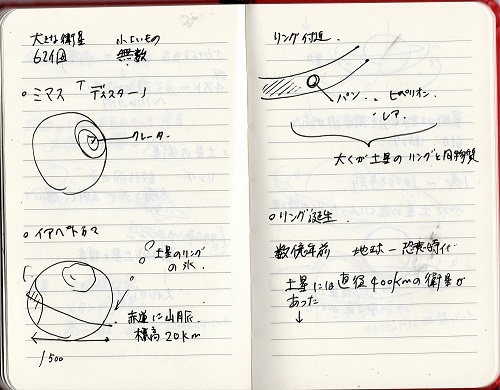 大きな衛星 小さいもの
62個 無数
○ミマス「デススター」
クレーター
○イアペトゥス
土星のリング
の氷.
赤道に山脈.
標高20km
1500
リング付近
パン.. ヒペリオン.
レア.
大くが土星のリングと同物質
○リング誕生.
数億年前 地球ー恐竜時代
土星には直径400kmの衛星が
あった
↓